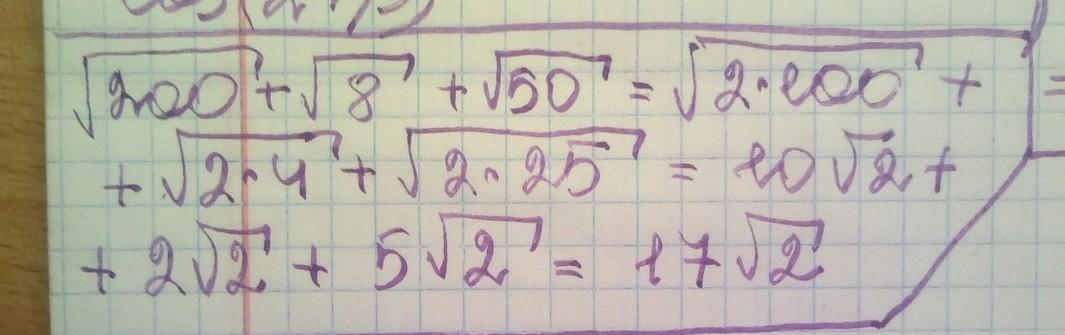 √200 + √8 + √50 = √2·100 +
+ √2·4 + √2·25 = 10√2 +
+ 2√2 + 5√2 = 17√2